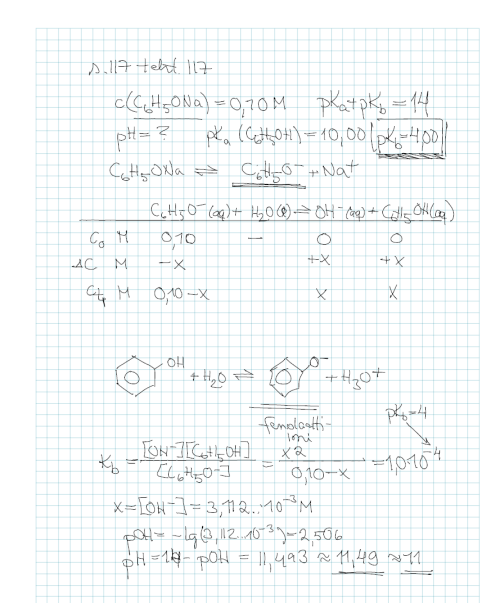 s.117 teht. 117
c(C₆H₅ONa) = 0,10 M pKa + pKb = 14
pH = ? pKa (C₆H₅OH) = 10,00 | pKb = 4,00
C₆H₅ONa ⇌ C₆H₅O⁻ + Na⁺
C₆H₅O⁻(aq) + H₂O(l) ⇌ OH⁻(aq) + C₆H₅OH(aq)
C₀ M 0,10 — 0 0
ΔC M -x +x +x
Ctp M 0,10-x x x
OH + H₂O ⇌ O⁻ + H₃O⁺
fenolaatti-
ioni
pKb=4
Kb = [OH⁻][C₆H₅OH] / [C₆H₅O⁻] = x² / 0,10-x = 1,0·10⁻⁴
x = [OH⁻] = 3,112...·10⁻³ M
pOH = -lg(3,112·10⁻³) = 2,506
pH = 14 - pOH = 11,493 ≈ 11,49 ≈ 11